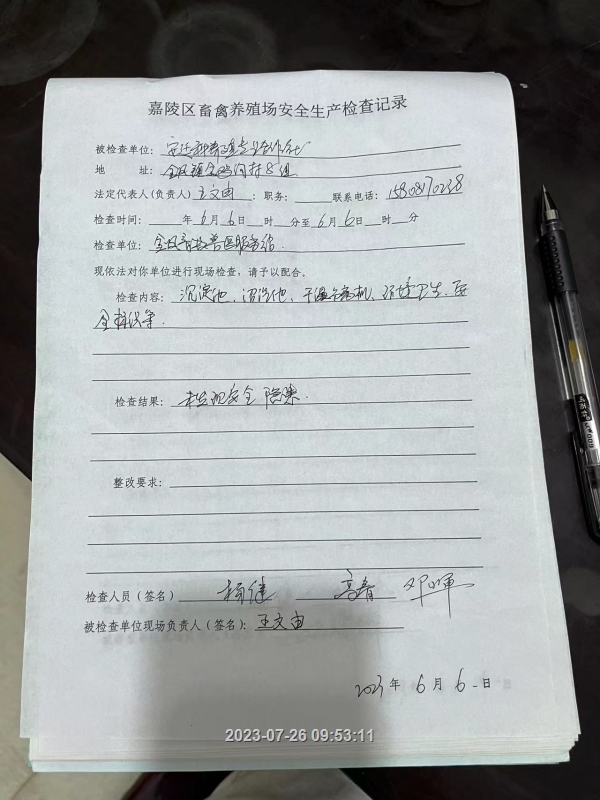 嘉陵区畜禽养殖场安全生产检查记录
被检查单位: 养殖专业合作社
地 址: 金凤镇 村8组
法定代表人(负责人) 王文由 : 职务: 联系电话:
检查时间: 年6月6日 时 分至6月6日 时 分
检查单位: 金凤畜牧兽医服务站.
现依法对你单位进行现场检查,请予以配合。
检查内容: 沉淀池、沼气池、干湿分离机、环境卫生、安
全 等.
检查结果: 未发现安全隐患.
整改要求:
检查人员(签名) 杨健 高春 邓晖
被检查单位现场负责人(签名): 王文由
2023年 6月 6日
2023-07-26 09:53:11